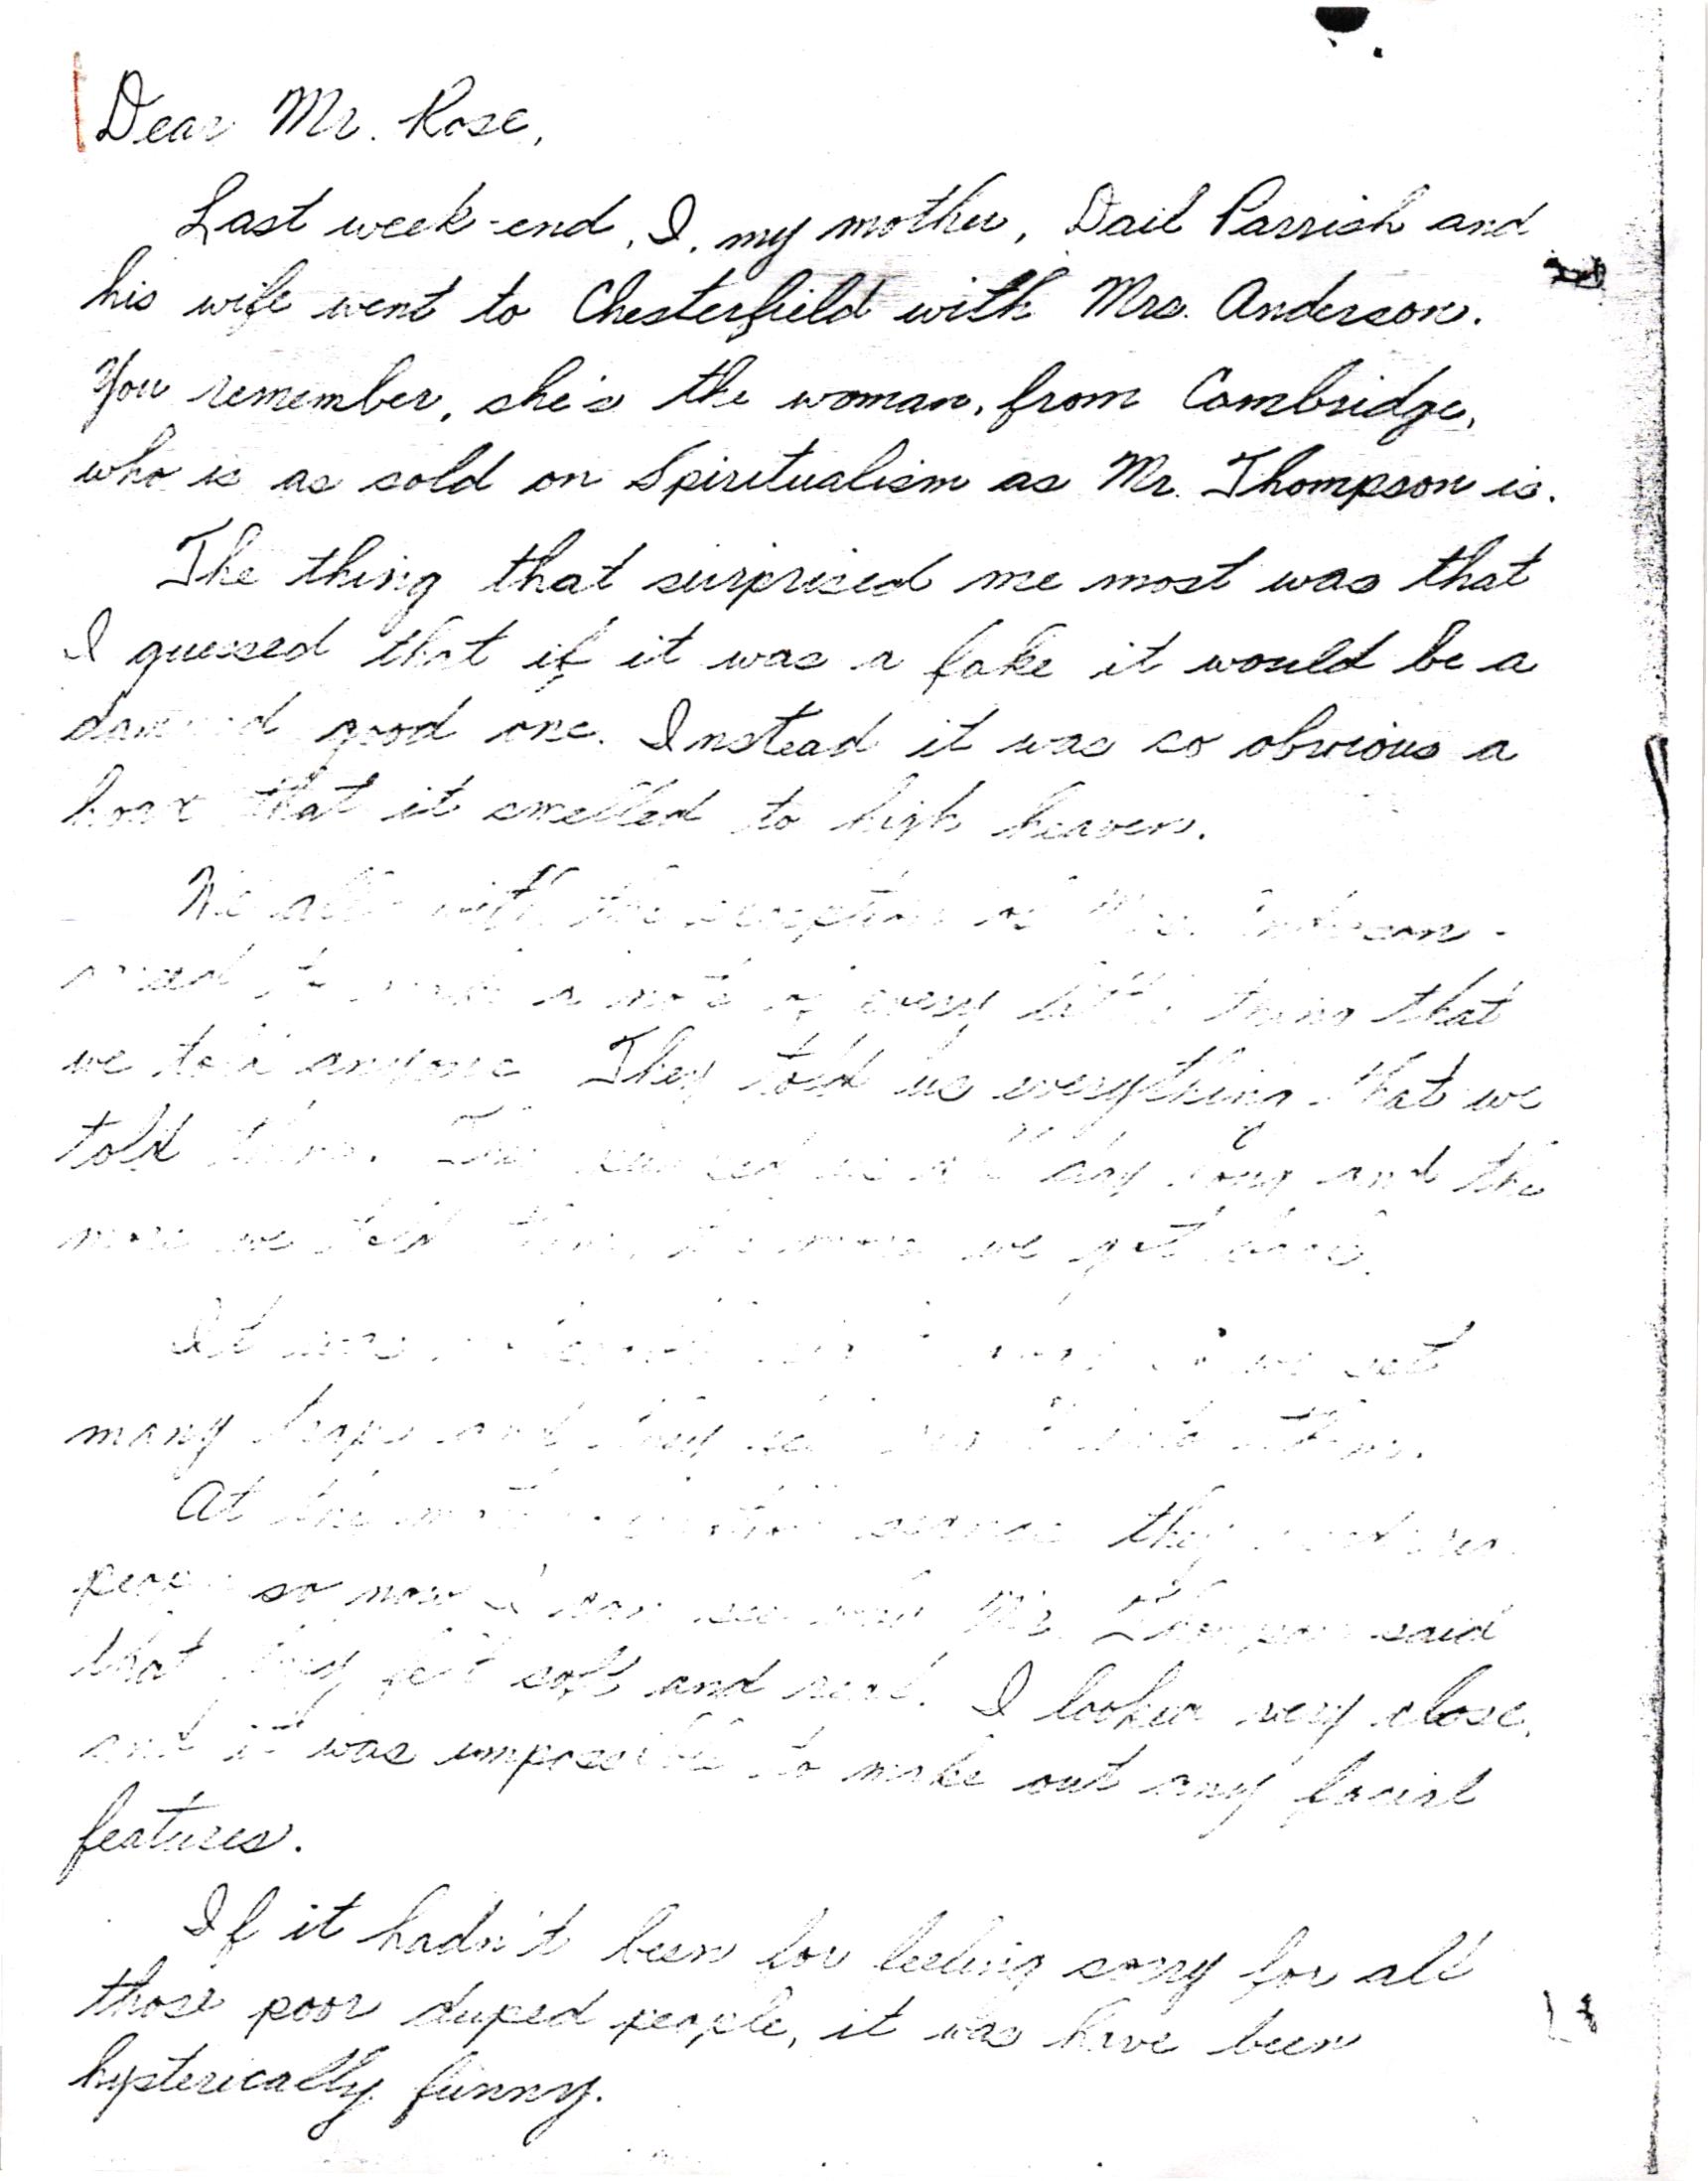 Dear Mr. Rose,
Last week-end, I, my mother, Dail Parrish and
his wife went to Chesterfield with Mrs. Anderson.
You remember, she's the woman, from Cambridge,
who is as sold on Spiritualism as Mr. Thompson is.
The thing that surprised me most was that
I guessed that if it was a fake it would be a
damned good one. Instead it was so obvious a
hoax that it smelled to high heaven.
We all - with the exception of Mrs. Anderson -
a note of every little thing that
we told anyone They told us everything that we
told them. us all day long and the
more we told them, the more we got back.
It was we set
many traps and they into them.
At the seance they
so now I can see Mr. Thompson said
that they felt soft and real. I looked very close,
and it was impossible to make out any facial
features.
If it hadn't been for feeling sorry for all
those poor duped people, it was have been
hysterically funny.